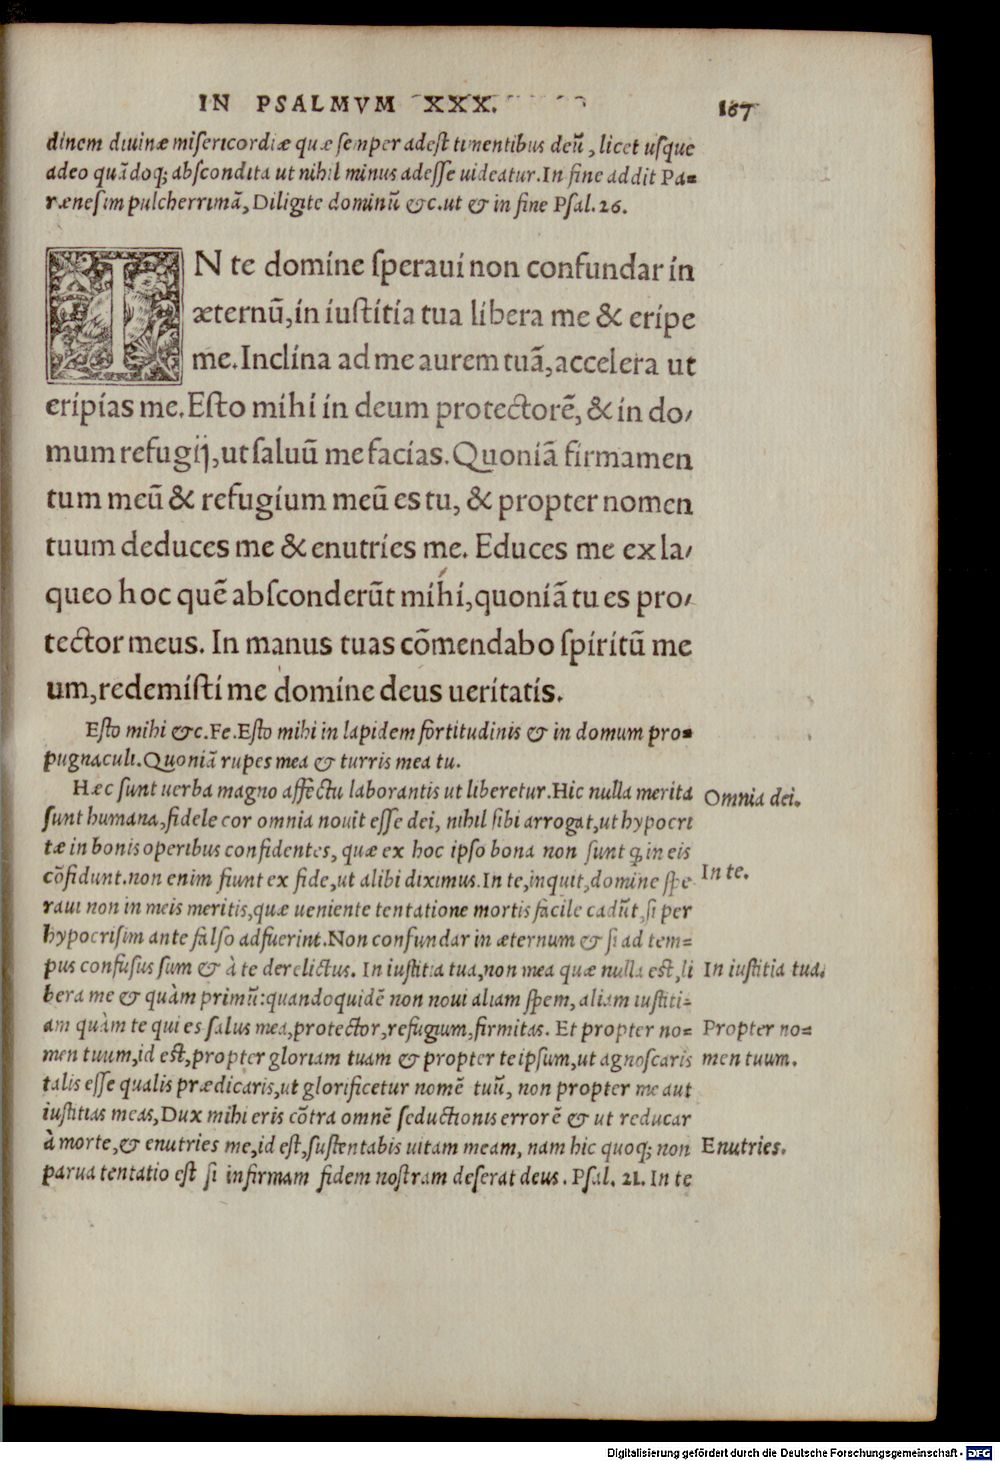 IN PSALMVM XXX. 167
dinem diuinæ misericordiæ quæ semper adest timentibus deũ, licet usque
adeo quãdoq; abscondita ut nihil minus adesse uideatur. In fine addit Pa=
rænesim pulcherrimã, Diligite dominũ &c. ut & in fine Psal. 26.
IN te domine speraui non confundar in
æternũ, in iustitia tua libera me & eripe
me. Inclina ad me aurem tuã, accelera ut
eripias me. Esto mihi in deum protectorẽ, & in do/
mum refugij, ut saluũ me facias. Quoniã firmamen
tum meũ & refugium meũ es tu, & propter nomen
tuum deduces me & enutries me. Educes me ex la/
queo hoc quẽ absconderũt mihi, quoniã tu es pro/
tector meus. In manus tuas cõmendabo spiritũ me
um, redemisti me domine deus ueritatis.
Esto mihi &c. Fe. Esto mihi in lapidem fortitudinis & in domum pro=
pugnaculi. Quoniã rupes mea & turris mea tu.
Hæc sunt uerba magno affectu laborantis ut liberetur. Hic nulla merita
Omnia dei.
sunt humana, fidele cor omnia nouit esse dei, nihil sibi arrogat, ut hypocri
tæ in bonis operibus confidentes, quæ ex hoc ipso bona non sunt q; in eis
In te.
cõfidunt. non enim fiunt ex fide, ut alibi diximus. In te, inquit, domine spe
raui non in meis meritis, quæ ueniente tentatione mortis facile cadũt, si per
hypocrisim ante falso adfuerint. Non confundar in æternum & si ad tem=
pus confusus sum & à te derelictus. In iustitia tua, non mea quæ nulla est, li
In iustitia tua.
bera me & quàm primũ: quandoquidẽ non noui aliam spem, aliam iustiti=
am quàm te qui es salus mea, protector, refugium, firmitas. Et propter no=
Propter no=
men tuum, id est, propter gloriam tuam & propter te ipsum, ut agnoscaris
men tuum.
talis esse qualis prædicaris, ut glorificetur nomẽ tuũ, non propter me aut
iustitias meas, Dux mihi eris cõtra omnẽ seductionis errorẽ & ut reducar
à morte, & enutries me, id est, sustentabis uitam meam, nam hic quoq; non
Enutries.
parua tentatio est si infirmam fidem nostram deserat deus. Psal. 21. In te
Digitalisierung gefördert durch die Deutsche Forschungsgemeinschaft - DFG